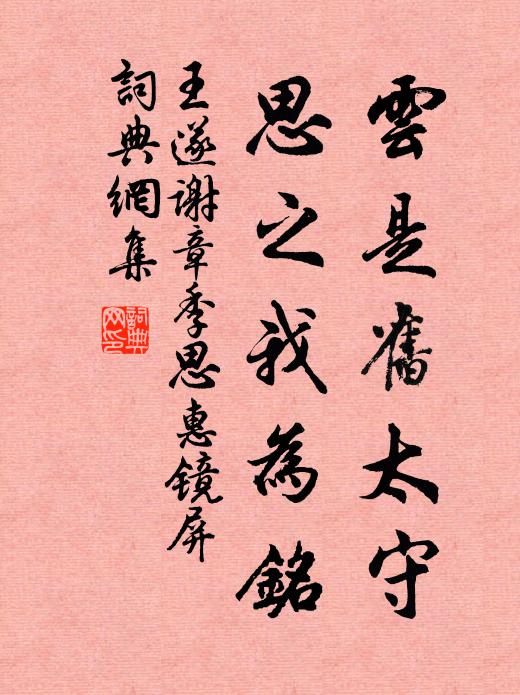 雲是舊太守
思之我為銘
王遂謝章季思惠鏡屏
詞典網集
詞典网印